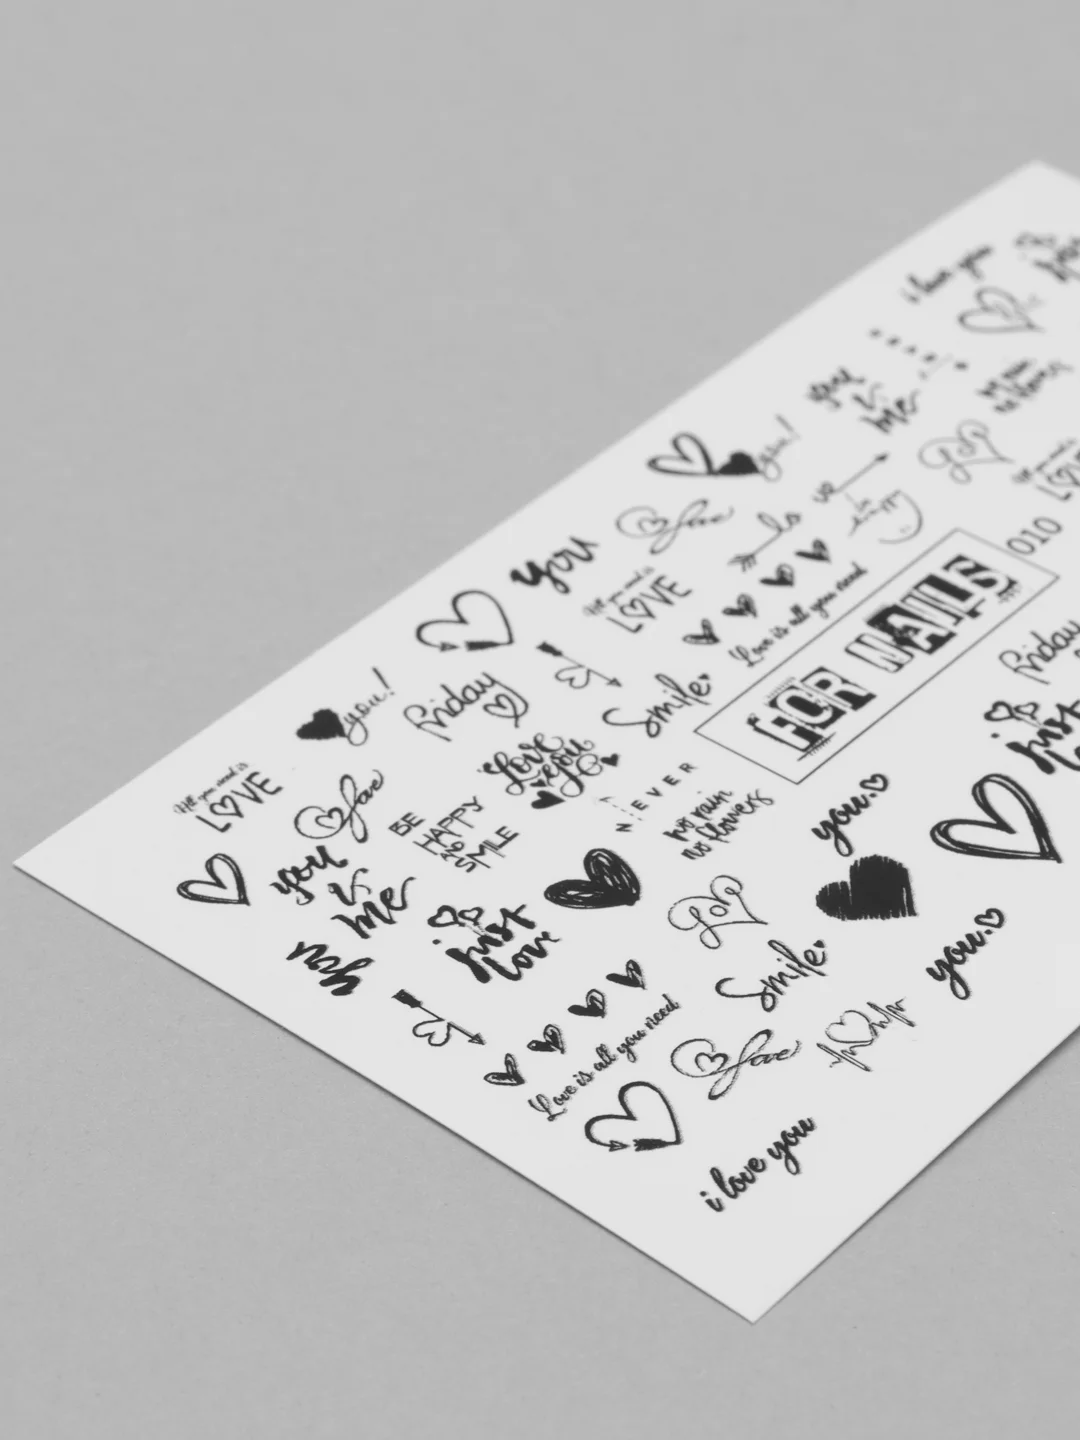 i love you
you
&
me
you!
Love
you
All you need is
LOVE
LOVE
010
Love is all you need
FOR NAILS
Friday
just
you!
Friday
Smile
Love
you
All you need is
LOVE
Love
BE
HAPPY
AND
SMILE
NEVER
no rain
no flowers
you.
you
&
me
just
love
Love
you
Smile
you.
Love is all you need
Love
i love you